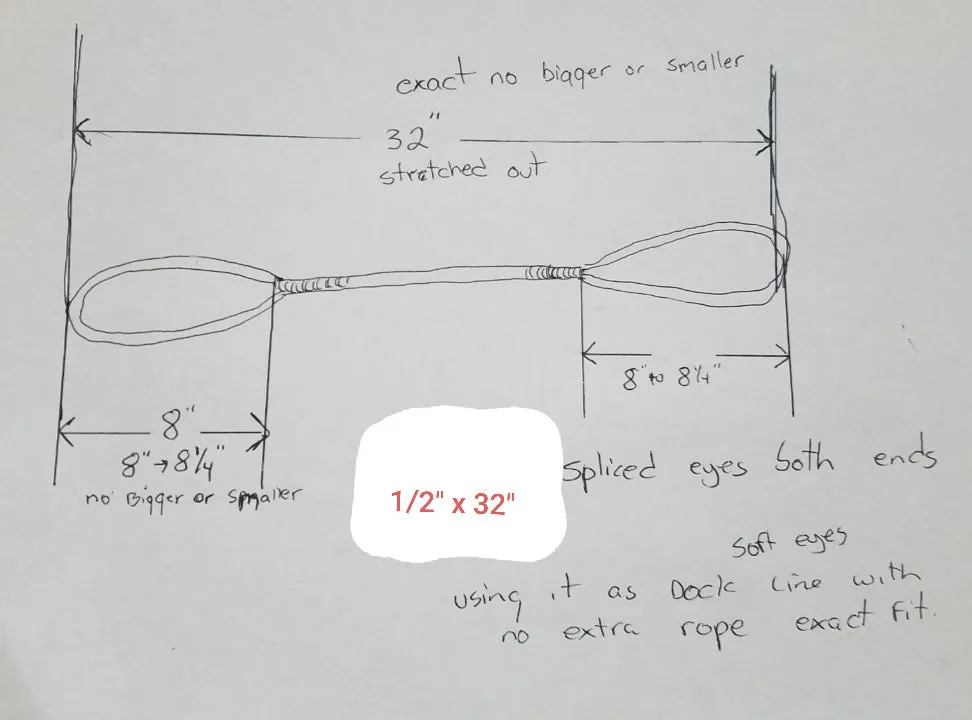 exact no bigger or smaller
32"
stretched out
8" to 8 1/4"
8"
8" → 8 1/4"
no Bigger or smaller
1/2" x 32"
spliced eyes both ends
soft eyes
using it as Dock Line with
no extra rope exact Fit.